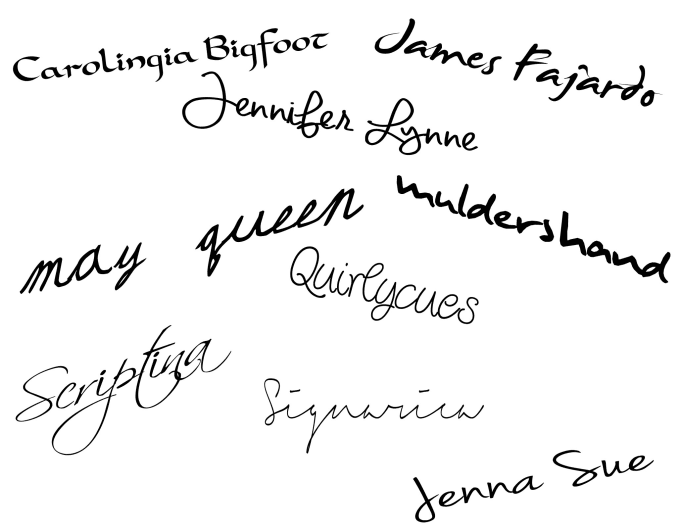 Carolingia Bigfoot
James Fajardo
Jennifer Lynne
muldershand
may queen
Quirlycues
Scriptina
Signarica
Jenna Sue